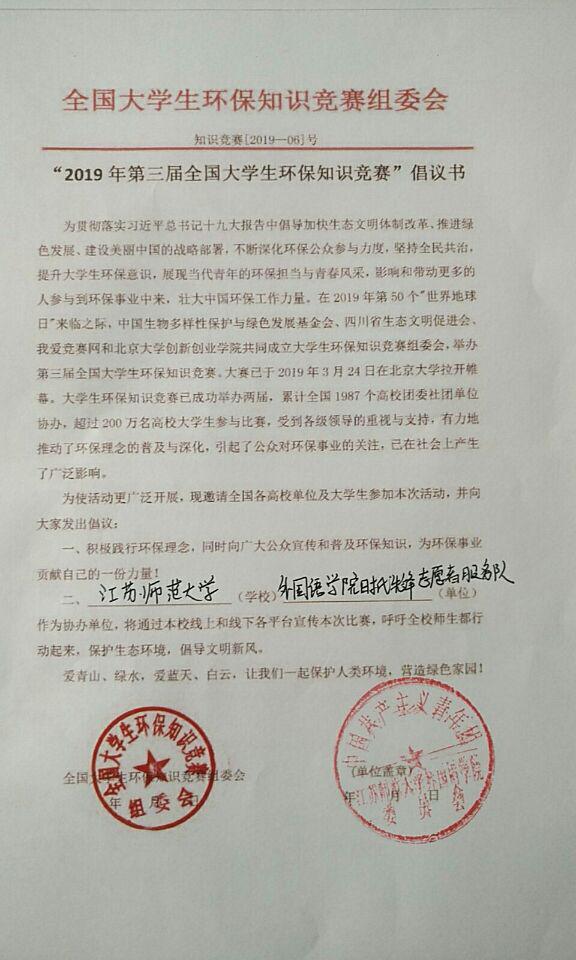 全国大学生环保知识竞赛组委会
知识竞赛[2019—06]号
“2019 年第三届全国大学生环保知识竞赛”倡议书
为贯彻落实习近平总书记十九大报告中倡导加快生态文明体制改革、推进绿
色发展、建设美丽中国的战略部署，不断深化环保公众参与力度，坚持全民共治，
提升大学生环保意识，展现当代青年的环保担当与青春风采，影响和带动更多的
人参与到环保事业中来，壮大中国环保工作力量。在 2019 年第 50 个"世界地球
日"来临之际，中国生物多样性保护与绿色发展基金会、四川省生态文明促进会、
我爱竞赛网和北京大学创新创业学院共同成立大学生环保知识竞赛组委会，举办
第三届全国大学生环保知识竞赛。大赛已于 2019 年 3 月 24 日在北京大学拉开帷
幕。大学生环保知识竞赛已成功举办两届，累计全国 1987 个高校团委社团单位
协办，超过 200 万名高校大学生参与比赛，受到各级领导的重视与支持，有力地
推动了环保理念的普及与深化，引起了公众对环保事业的关注，已在社会上产生
了广泛影响。
为使活动更广泛开展，现邀请全国各高校单位及大学生参加本次活动，并向
大家发出倡议：
一、积极践行环保理念，同时向广大公众宣传和普及环保知识，为环保事业
贡献自己的一份力量！
二、江苏师范大学（学校）外国语学院日韩先锋志愿者服务队（单位）
作为协办单位，将通过本校线上和线下各平台宣传本次比赛，呼吁全校师生都行
动起来，保护生态环境，倡导文明新风。
爱青山、绿水，爱蓝天、白云，让我们一起保护人类环境，营造绿色家园！
全国大学生环保知识竞赛组委会
年 月 日
（单位盖章）
年 月 日
全国大学生环保知识竞赛
组委会
中国共产主义青年团
江苏师范大学外国语学院
委员会